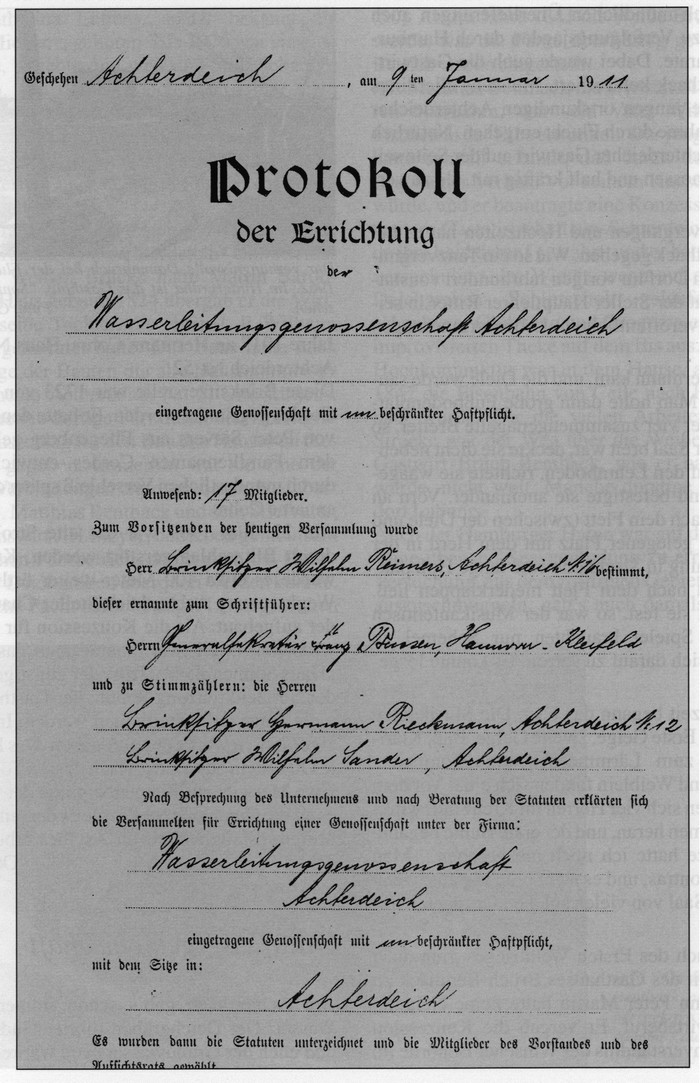 Geschehen Achterdeich, am 9ten Januar 1911
Protokoll
der Errichtung
der
Wasserleitungsgenossenschaft Achterdeich
eingetragene Genossenschaft mit un beschränkter Haftpflicht.
Anwesend: 17 Mitglieder.
Zum Vorsitzenden der heutigen Versammlung wurde
Herr Brinksitzer Wilhelm Reimers, Achterdeich No 16 bestimmt,
dieser ernannte zum Schriftführer:
Herrn Generalsekretär Hannover-Kleefeld
und zu Stimmzählern: die Herren
Brinksitzer Hermann Rieckmann, Achterdeich No 12
Brinksitzer Wilhelm Sander, Achterdeich
Nach Besprechung des Unternehmens und nach Beratung der Statuten erklärten sich
die Versammelten für Errichtung einer Genossenschaft unter der Firma:
Wasserleitungsgenossenschaft
Achterdeich
eingetragene Genossenschaft mit un beschränkter Haftpflicht,
mit dem Sitze in:
Achterdeich
Es wurden dann die Statuten unterzeichnet und die Mitglieder des Vorstandes und des
Aufsichtsrats gewählt